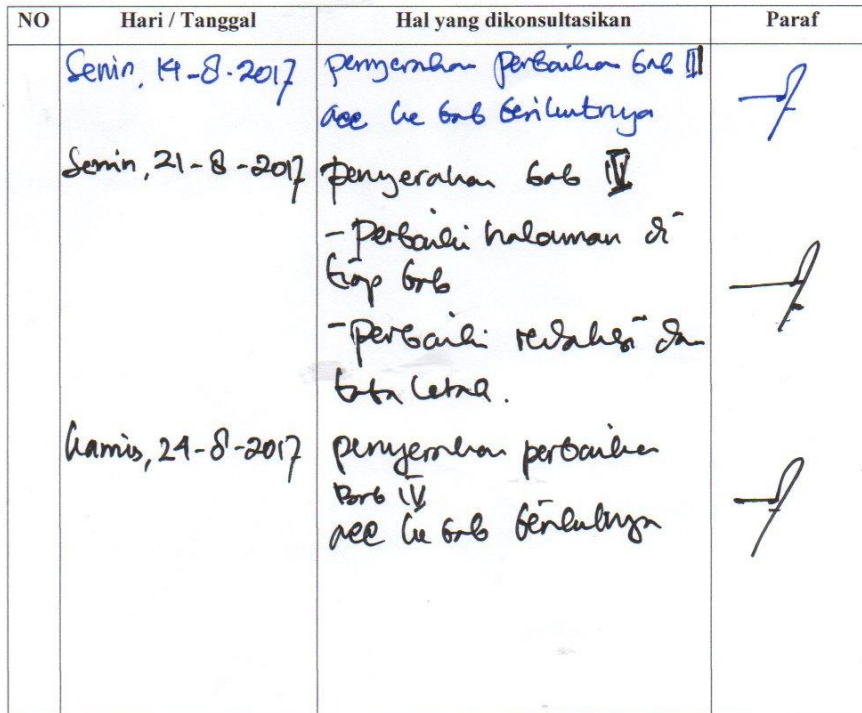 NO Hari / Tanggal Hal yang dikonsultasikan Paraf
Senin, 14-8-2017 penyerahan perbaikan bab III
acc ke bab berikutnya
Senin, 21-8-2017 penyerahan bab IV
- perbaiki halaman di
tiap bab
- perbaiki redaksi dan
tata letak.
Kamis, 24-8-2017 penyerahan perbaikan
Bab IV
acc ke bab berikutnya